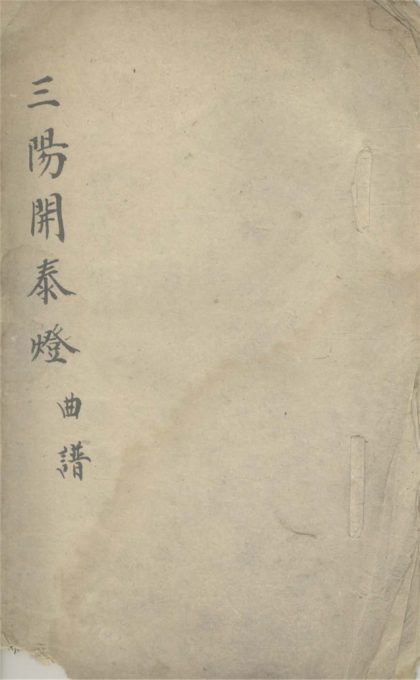 三陽開泰燈
曲譜